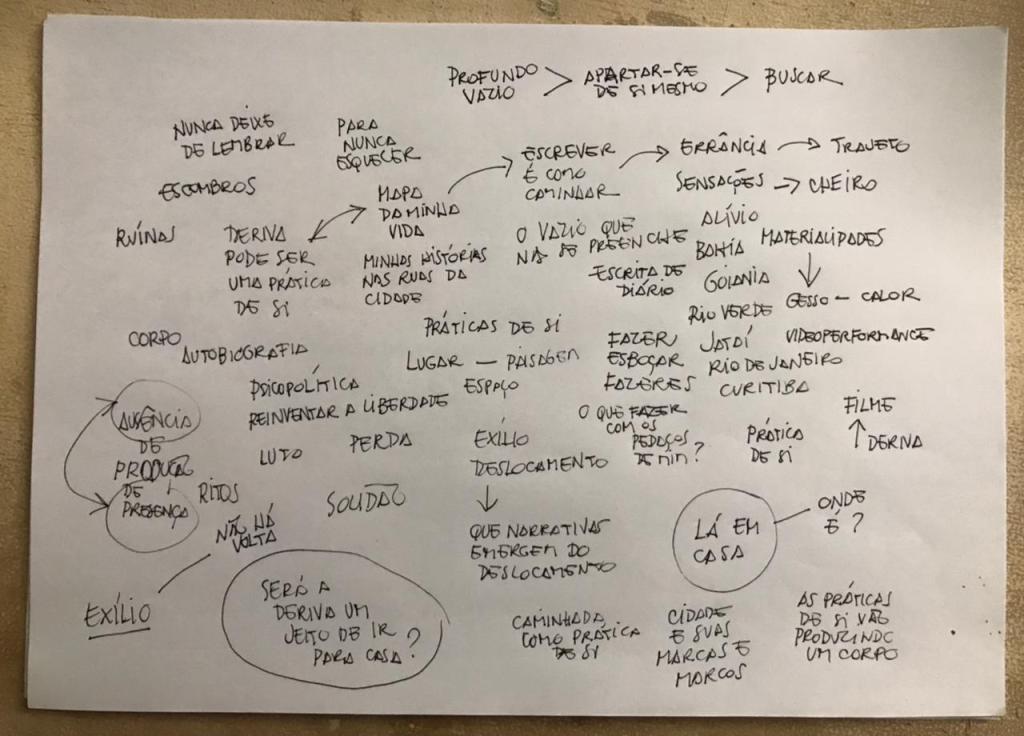 PROFUNDO
VAZIO
>
APARTAR-SE
DE SI MESMO
>
BUSCAR
NUNCA DEIXE
DE LEMBRAR
PARA
NUNCA
ESQUECER
ESCOMBROS
MAPA
DA MINHA
VIDA
ESCREVER
É COMO
CAMINHAR
ERRÂNCIA
TRAJETO
SENSAÇÕES → CHEIRO
RUÍNAS
DERIVA
PODE SER
UMA PRÁTICA
DE SI
MINHAS HISTÓRIAS
NAS RUAS DA
CIDADE
O VAZIO QUE
NÃO SE PREENCHE
ESCRITA DE
DIÁRIO
ALÍVIO
BAHIA
GOIANIA
RIO VERDE
JATAÍ
RIO DE JANEIRO
CURITIBA
MATERIALIDADES
GESSO — CALOR
VIDEOPERFORMANCE
CORPO
AUTOBIOGRAFIA
PRÁTICAS DE SI
LUGAR — PAISAGEM
ESPAÇO
FAZER
ESBOÇAR
FAZERES
PSICOPOLÍTICA
REINVENTAR A LIBERDADE
AUSÊNCIA
DE
PRODUÇÃO
DE
PRESENÇA
LUTO
PERDA
EXÍLIO
DESLOCAMENTO
O QUE FAZER
COM OS
PEDAÇOS
DE MIM?
PRÁTICA
DE SI
FILME
DERIVA
RITOS
SOLIDÃO
NÃO HÁ
VOLTA
EXÍLIO
SERÁ A
DERIVA UM
JEITO DE IR
PARA CASA?
QUE NARRATIVAS
EMERGEM DO
DESLOCAMENTO
LÁ EM
CASA
ONDE
É?
CAMINHADA
COMO PRÁTICA
DE SI
CIDADE
E SUAS
MARCAS E
MARCOS
AS PRÁTICAS
DE SI VÃO
PRODUZINDO
UM CORPO